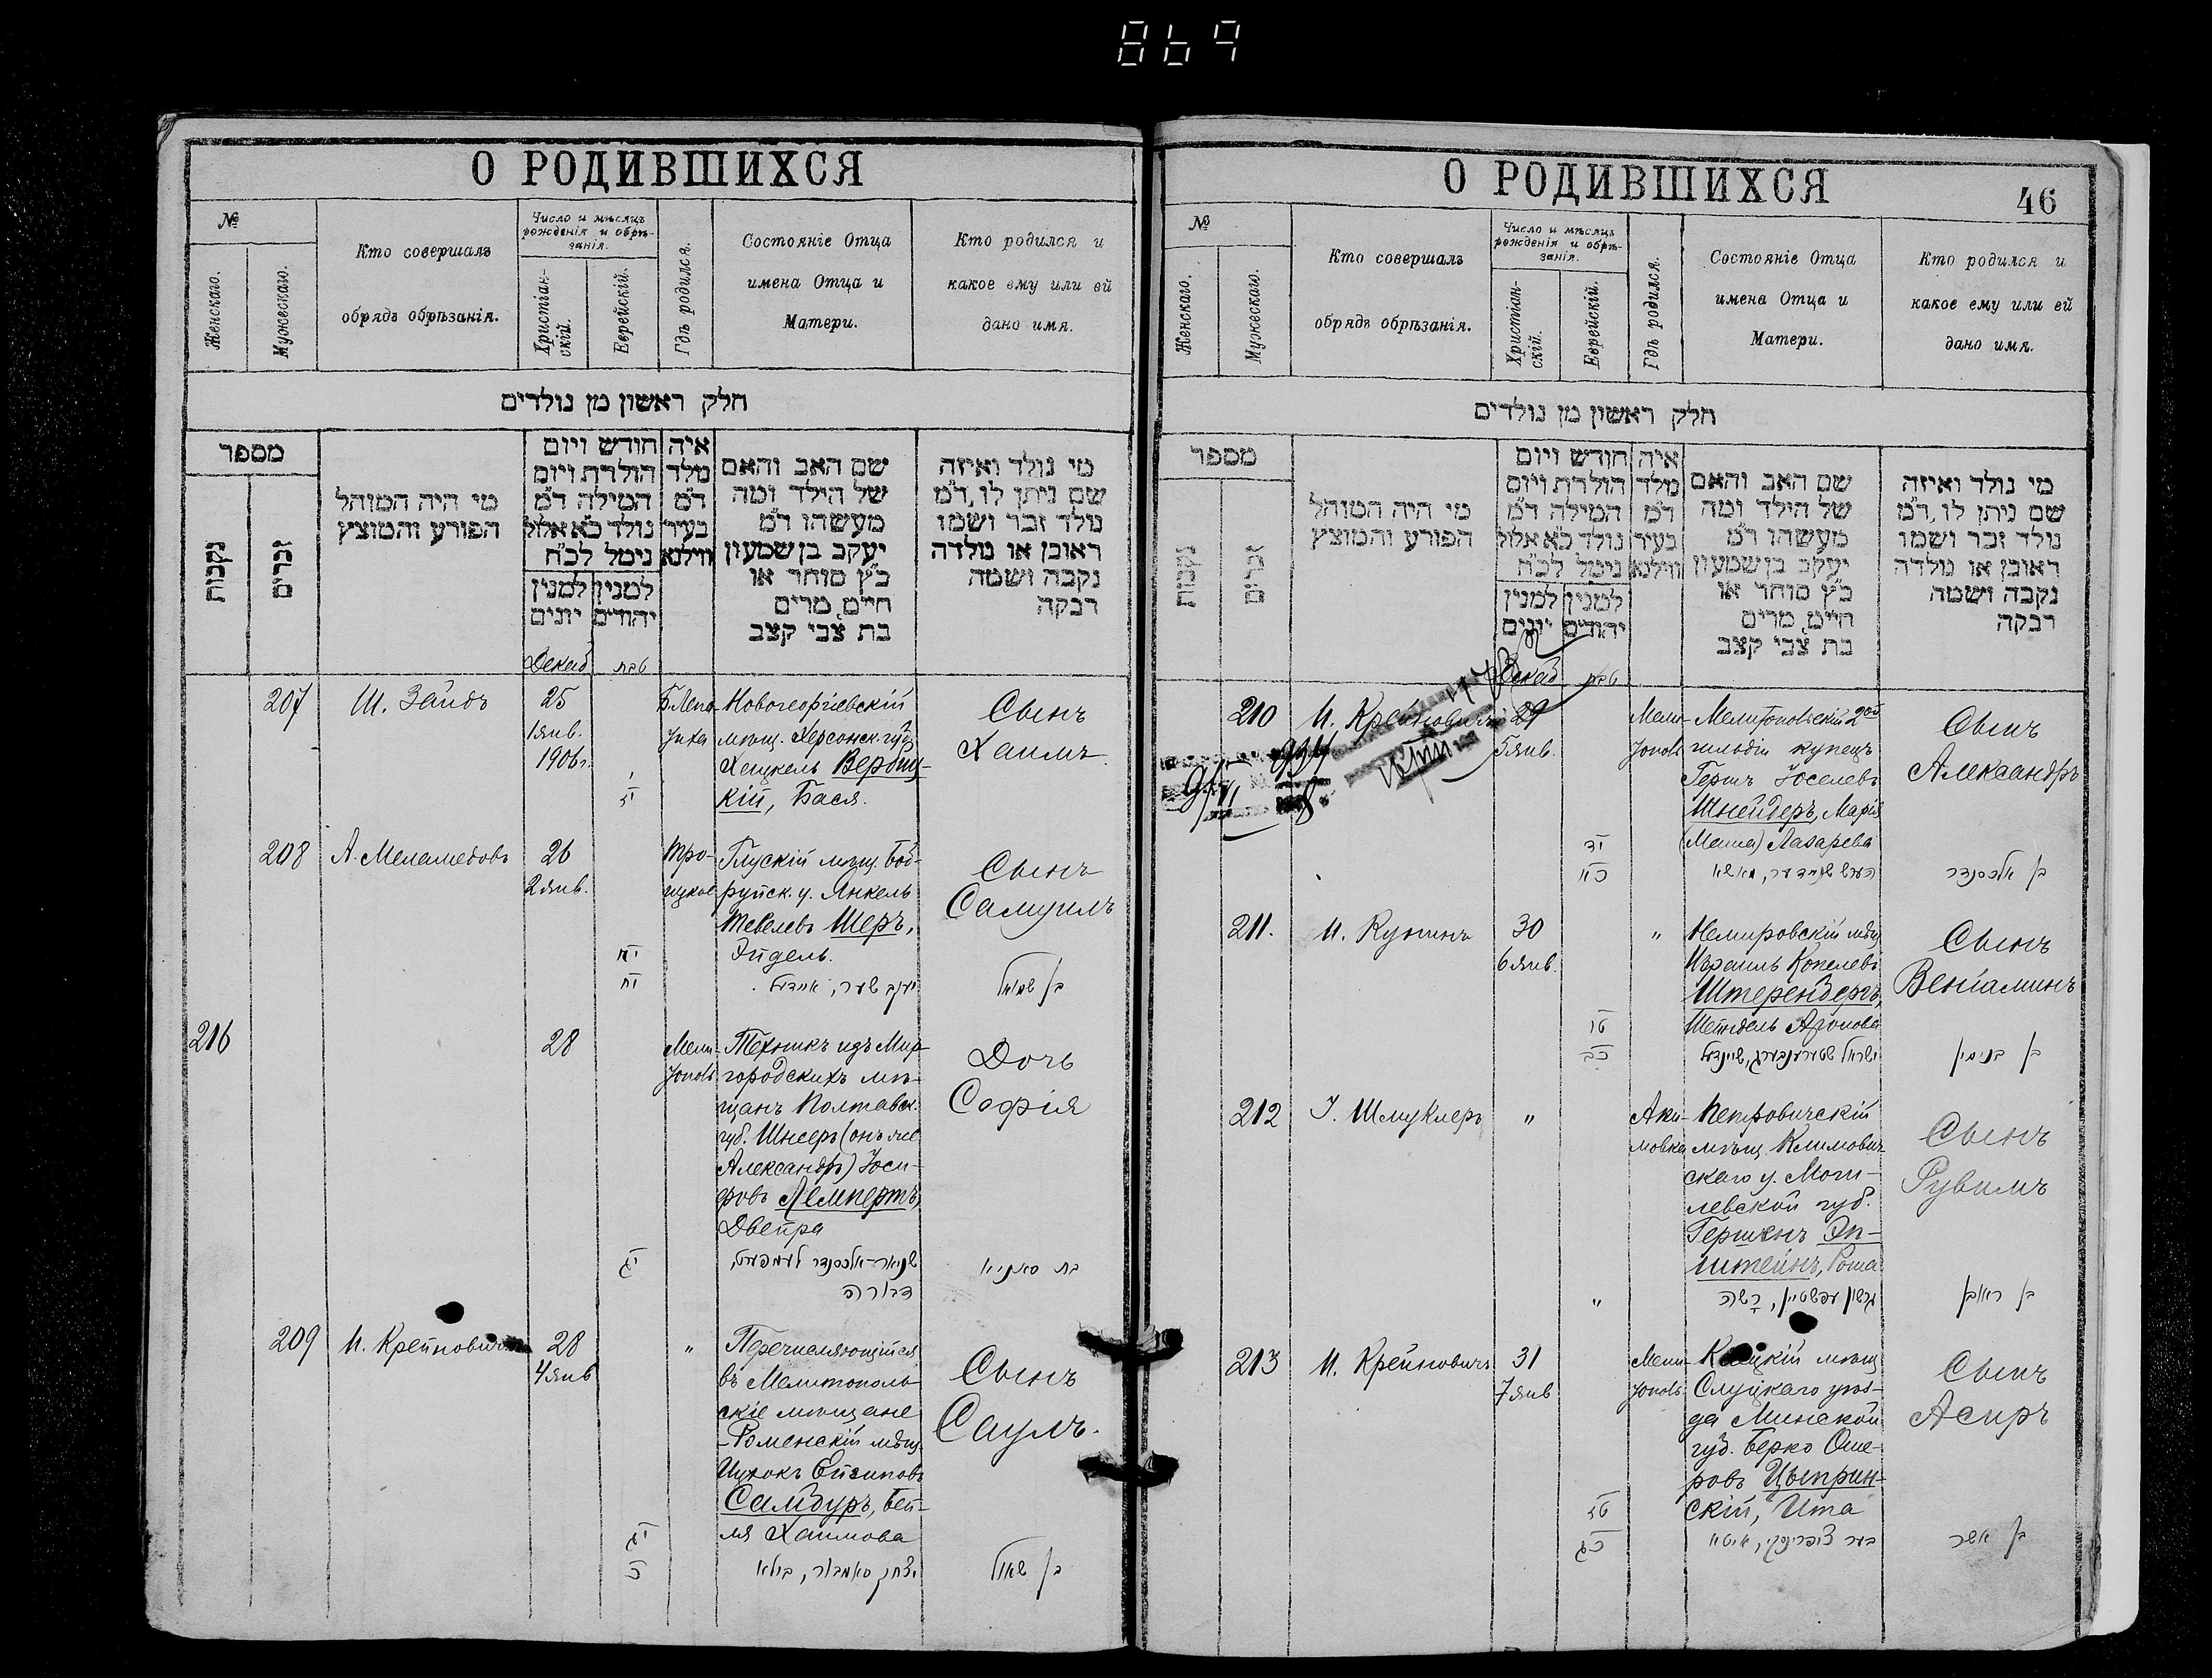 869
О РОДИВШИХСЯ
№
Женскаго.
Мужескаго.
Кто совершалъ
обрядъ обрѣзанія.
Число и мѣсяцъ
рожденія и обрѣ-
занія.
Христіан-
скій.
Еврейскій.
Гдѣ родился.
Состояніе Отца
имена Отца и
Матери.
Кто родился и
какое ему или ей
дано имя.
חלק ראשון מן נולדים
מספר
נקבות
זכרים
מי היה המוהל
הפורע והמוצץ
חודש ויום
הולדת ויום
המילה ד״מ
נולד כ״א אלול
נימל לכ״ח
למנין
יהודים
למנין
יונים
איה
מלד
ד״מ
בעיר
ווילנא
שם האב והאם
של הילד ומה
מעשהו ד״מ
יעקב בן שמעון
כ״ץ סוחר או
חיים, מרים
בת צבי קצב
מי נולד ואיזה
שם ניתן לו, ד״מ
נולד זכר ושמו
ראובן או נולדה
נקבה ושמה
רבקה
Декаб
טבת
207
Ш. Зайдъ
25
1 янв.
1906 г.
י
יז
Новогеоргіевскій
мѣщ. Херсонск. губ.
Хацкель Вербиц-
кій, Бася.
Сынъ
Хаимъ
208
А. Меламедовъ
26
2 янв.
יח
Глускій мѣщ. Боб-
руйск. у. Янкель
Тевелевъ Шеръ,
Эйдель.
יעקב שער, איידעל.
Сынъ
Самуилъ
בן שמואל
216
28
יג
Мели-
топол
Техникъ изъ Мир-
городскихъ мѣ-
щанъ Полтавск.
губ. Шнееръ (онъ же
Александръ) Іоси-
фовъ Лемпертъ,
Двейра
שניאור-אלכסנדר לעמפערט,
דבורה
Дочь
Софія
בת סאניא
209
И. Крейновичъ
28
4 янв
יג
כ
"
Перечисляющійся
въ Мелитополь-
скіе мѣщане
-Роменскій мѣщ.
Ицхокъ Ейзиповъ
Самбуръ, Бей-
ля Хаимова
יצחק סאמבור, ביילא
Сынъ
Саулъ.
בן שאול
О РОДИВШИХСЯ
46
№
Женскаго.
Мужескаго.
Кто совершалъ
обрядъ обрѣзанія.
Число и мѣсяцъ
рожденія и обрѣ-
занія.
Христіан-
скій.
Еврейскій.
Гдѣ родился.
Состояніе Отца
имена Отца и
Матери.
Кто родился и
какое ему или ей
дано имя.
חלק ראשון מן נולדים
מספר
נקבות
זכרים
מי היה המוהל
הפורע והמוצץ
חודש ויום
הולדת ויום
המילה ד״מ
נולד כ״א אלול
נימל לכ״ח
למנין
יהודים
למנין
יונים
איה
מלד
ד״מ
בעיר
ווילנא
שם האב והאם
של הילד ומה
מעשהו ד״מ
יעקב בן שמעון
כ״ץ סוחר או
חיים, מרים
בת צבי קצב
מי נולד ואיזה
שם ניתן לו, ד״מ
נולד זכר ושמו
ראובן או נולדה
נקבה ושמה
רבקה
Декаб
טבת
210
И. Крейновичъ
29
5 янв.
יד
כא
Мели-
топол
Мелитопольскій 2ой
гильдіи купецъ
Гершъ Іоселевъ
Шнейдеръ, Марія
(Маша) Лазарева
הערש שניידער, מאשא
Сынъ
Александръ
בן אלכסנדר
211.
И. Кунинъ
30
6 янв.
טו
כב
"
Немировскій мѣщ
Израиль Копелевъ
Штеренбергъ,
Шейндель Аронова
ישראל שטערענבערג, שיינדעל
Сынъ
Веніаминъ
בן בנימין
212
І. Шмуклеръ
"
"
Аки-
мовка
Петровичскій
мѣщ. Климович-
скаго у. Моги-
левской губ.
Гершонъ Эп-
штейнъ, Роша
גרשון עפשטיין, ראשה
Сынъ
Рувимъ
בן ראובן
213
И. Крейновичъ
31
7 янв
טז
כג
Мели-
топол
мѣщ
Слуцкаго уѣз-
да Минской
губ. Берко Оше-
ровъ Цыприн-
скій, Ита
בער ציפרינסקי, איטא
Сынъ
Асиръ
בן אשר